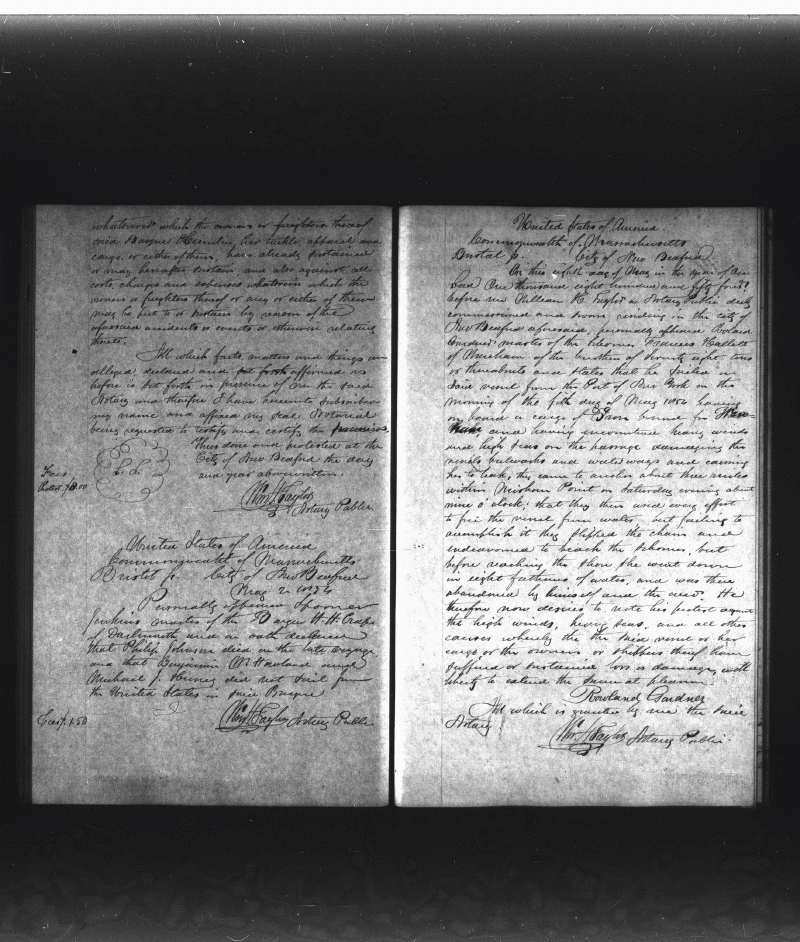 whatsoever which the owners or freighters thereof
said Barque Kremlin, her tackle, apparel and
cargo, or either of them, have already sustained
or may hereafter sustain and also against all
costs, charges and expenses whatsoever which the
owners or freighters thereof or any or either of them
may be put to or sustain by reason of the
aforesaid accidents or events or otherwise relating
thereto.
All which facts matters and things are
alleged, declared and put forth affirmed as
before is set forth in presence of me the said
Notary and therefore I have hereunto subscribed
my name and affixed my seal Notarial
being requested to testify and certify the premises
Thus done and protested at the
City of New Bedford the day
and year above written.
Fees
Protest
L. S.
Wm H Taylor
Notary Public
United States of America
Commonwealth of Massachusetts
Bristol ss. City of New Bedford
May 2 1854
Personally appeared
Jenkins master of the Barque H. H. Crapo
of Dartmouth and on oath declared
that Philip Johnson died on the late voyage
and that Benjamin W. Howland and
Michael J. did not sail from
the United States in said Barque
1.50
Wm H Taylor Notary Public
United States of America
Commonwealth of Massachusetts
Bristol ss. City of New Bedford
On this eighth day of May in the year of our
Lord One thousand eight hundred and fifty four
before me William H. Taylor a Notary Public duly
commissioned and sworn residing in the city of
New Bedford aforesaid, personally appeared Roland
Gardner master of the Schooner Frances Hallett
of Wareham of the burthen of Seventy eight tons
or thereabouts and states that he sailed in
said vessel from the Port of New York on the
morning of the fifth day of May 1854 having
on board a cargo of Iron bound for
and having encountered heavy winds
and high seas on the passage damaging the
vessels bulwarks and waterways and causing
her to leak, they came to anchor about three miles
within Mishaum Point on Saturday evening about
nine o'clock; that they then used every effort
to free the vessel from water, but failing to
accomplish it they slipped the chain and
endeavored to beach the schooner, but
before reaching the shore she went down
in eight fathoms of water, and was there
abandoned by himself and the crew. He
therefore now desires to note his protest against
the high winds, heavy seas, and all other
causes whereby the the said vessel or her
cargo or the owners or shippers thereof have
suffered or sustained loss or damage, with
liberty to extend the same at pleasure.
Rowland Gardner
All which is granted by me the said
Notary
Wm H Taylor Notary Public